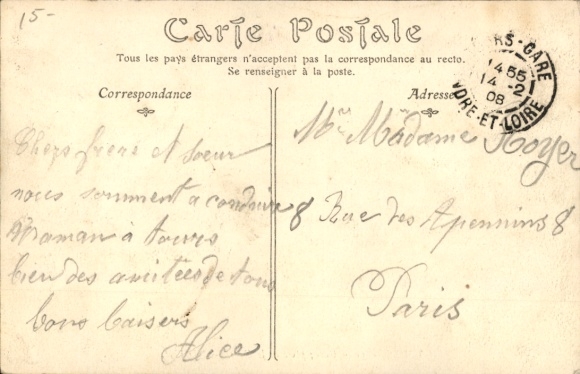 15-
Carte Postale
Tous les pays étrangers n'acceptent pas la correspondance au recto.
Se renseigner à la poste.
Correspondance
Adresse
RS-GARE
14 55
14 -2
08
INDRE-ET-LOIRE
Chers frere et soeur
nous somment a conduire
Maman à tours
bien des amitées de tous
bons baisers
Alice
Mr Madame Royer
8 Rue des Apennins 8
Paris